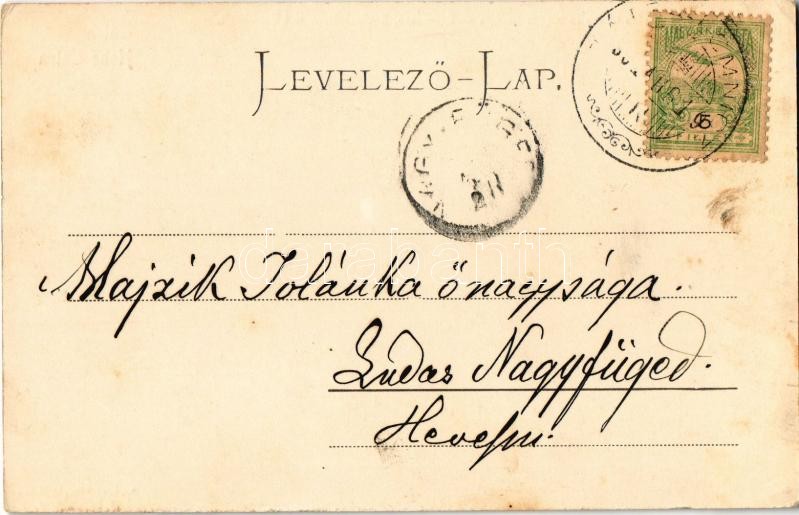 LEVELEZŐ-LAP.
MAGYAR KIR. POSTA
NAGY-FÜGED
Majzik Jolánka őnagysága.
Ludas Nagyfüged.
Hevesm.
darabanth